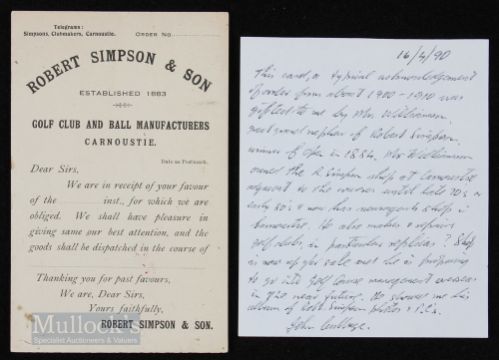 Telegrams:
Simpsons, Clubmakers, Carnoustie.
ORDER NO.
ROBERT SIMPSON & SON
ESTABLISHED 1883
GOLF CLUB AND BALL MANUFACTURERS
CARNOUSTIE.
Date as Postmark.
Dear Sirs,
We are in receipt of your favour
of the inst., for which we are
obliged. We shall have pleasure in
giving same our best attention, and the
goods shall be dispatched in the course of
Thanking you for past favours,
We are, Dear Sirs,
Yours faithfully,
ROBERT SIMPSON & SON.
Mullock's
Specialist Auctioneers & Valuers
16/4/90
This card, a typical acknowledgement
of order from about 1900 - 1910 was
gifted to me by Mr. Williamson,
great grand nephew of Robert Simpson,
winner of Open in 1884. Mr Williamson
owned the R Simpson shop at Carnoustie
adjacent to the course until late 70's or
early 80's & now has newsagents shop in
Carnoustie. He also makes & repairs
golf clubs, in particular replicas? Shop
is now up for sale and he is preparing
to go into golf course management overseas
in the near future. He showed me his
album of Bob Simpson photos & P.C's.
John